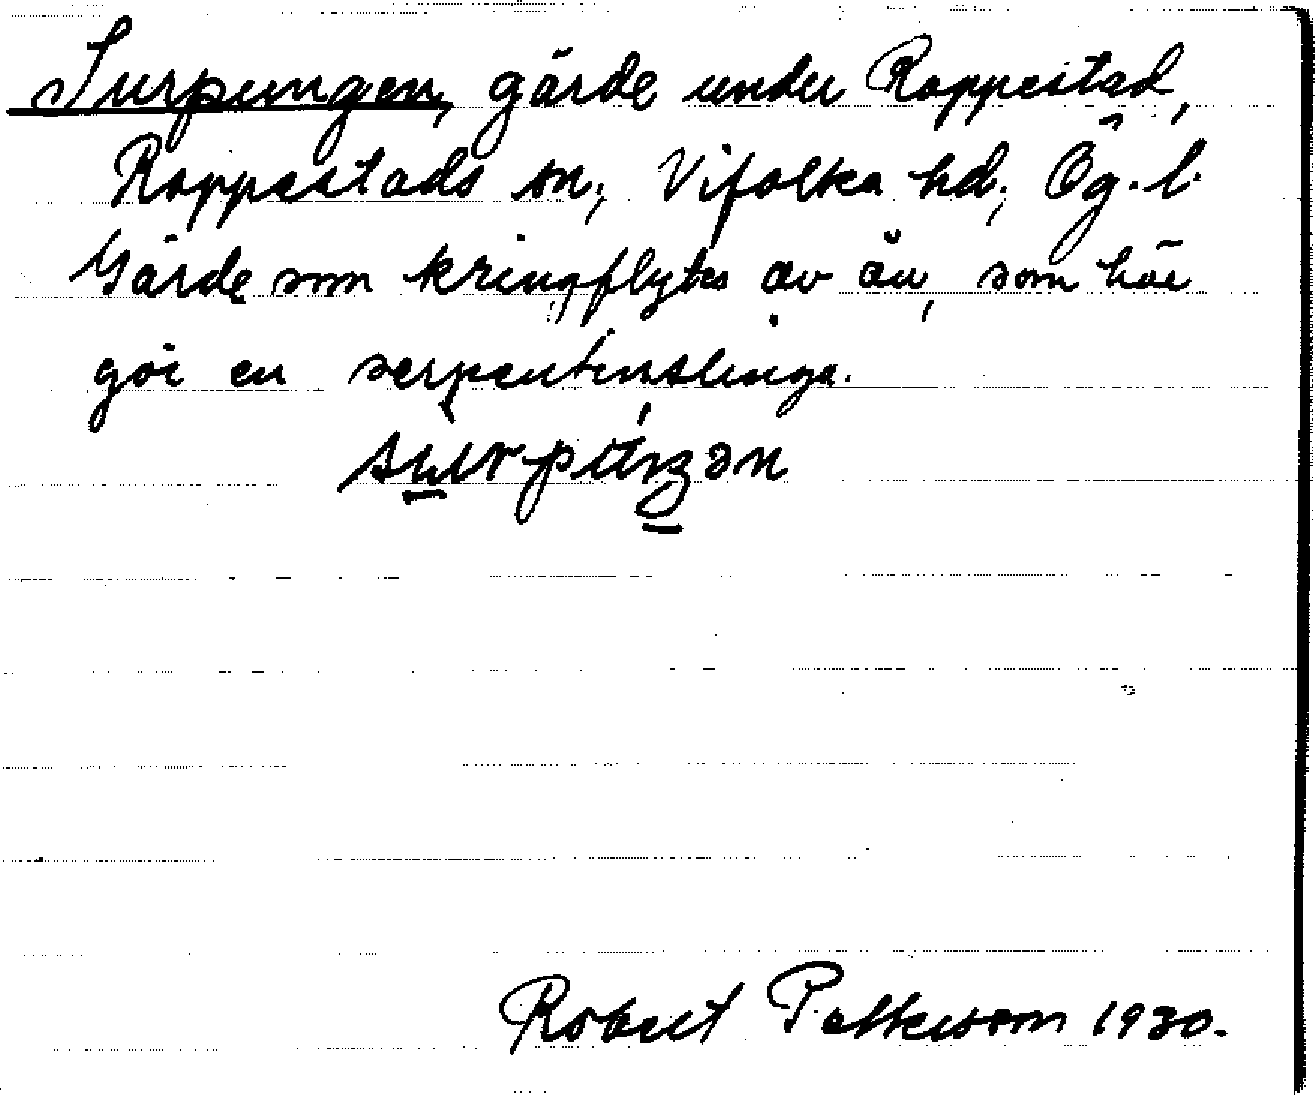 Surpungen, gärde under Rappestad,
Rappestads sn, Vifolka hd, Ög. l.
Gärde som kringflytes av ån, som här
gör en serpentinslinga.
Robert 1930.